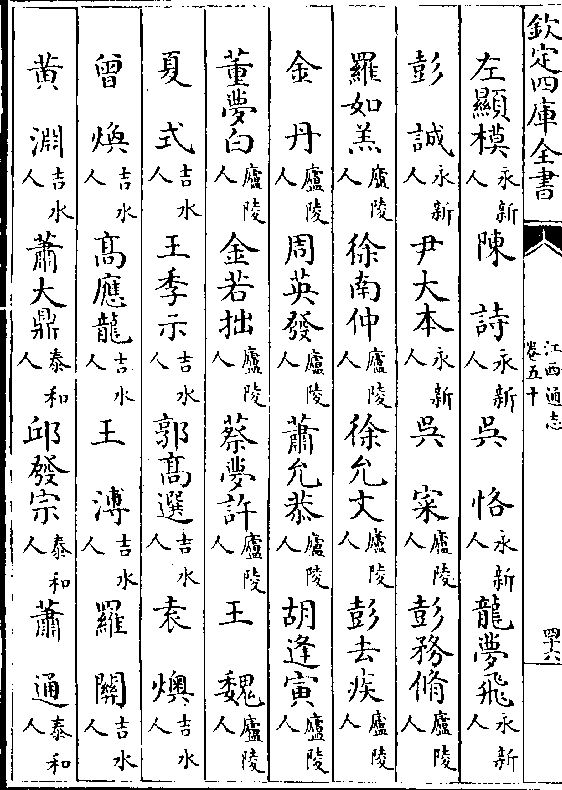 欽定四庫全書
江西通志
卷五十
四十六
左顯模永新人 陳詩永新人 吳恪永新人 龍夢飛永新人
彭誠永新人 尹大本永新人 吳寀廬陵人 彭務脩廬陵人
羅如羔廬陵人 徐南仲廬陵人 徐允文廬陵人 彭去疾廬陵人
金丹廬陵人 周英發廬陵人 蕭允恭廬陵人 胡逢寅廬陵人
董夢白廬陵人 金若拙廬陵人 蔡夢許廬陵人 王巍廬陵人
夏式吉水人 王季示吉水人 郭髙選吉水人 袁燠吉水人
曾煥吉水人 髙應龍吉水人 王溥吉水人 羅關吉水人
黃淵吉水人 蕭大鼎泰和人 邱發宗泰和人 蕭通泰和人